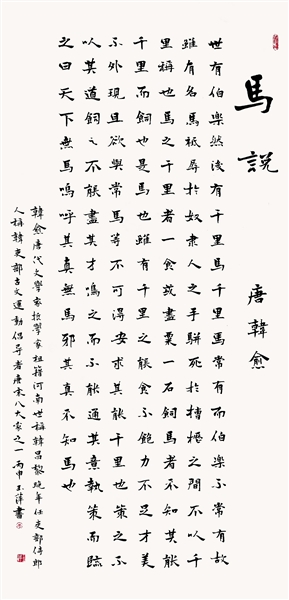 馬說 唐韓愈
世有伯樂然後有千里馬千里馬常有而伯樂不常有故
雖有名馬祗辱於奴隶人之手駢死於槽櫪之間不以千
里稱也馬之千里者一食或盡粟一石飼馬者不知其能
千里而飼也是馬也雖有千里之能食不飽力不足才美
不外現且欲與常馬等不可得安求其能千里也策之不
以其道飼之不能盡其才鳴之而不能通其意執策而臨
之曰天下無馬嗚呼其真無馬邪其真不知馬也
韓愈唐代文學家哲學家祖籍河南世稱韓昌黎晚年任吏部侍郎
人稱韓吏部古文運動倡導者唐宋八大家之一丙申玉萍書